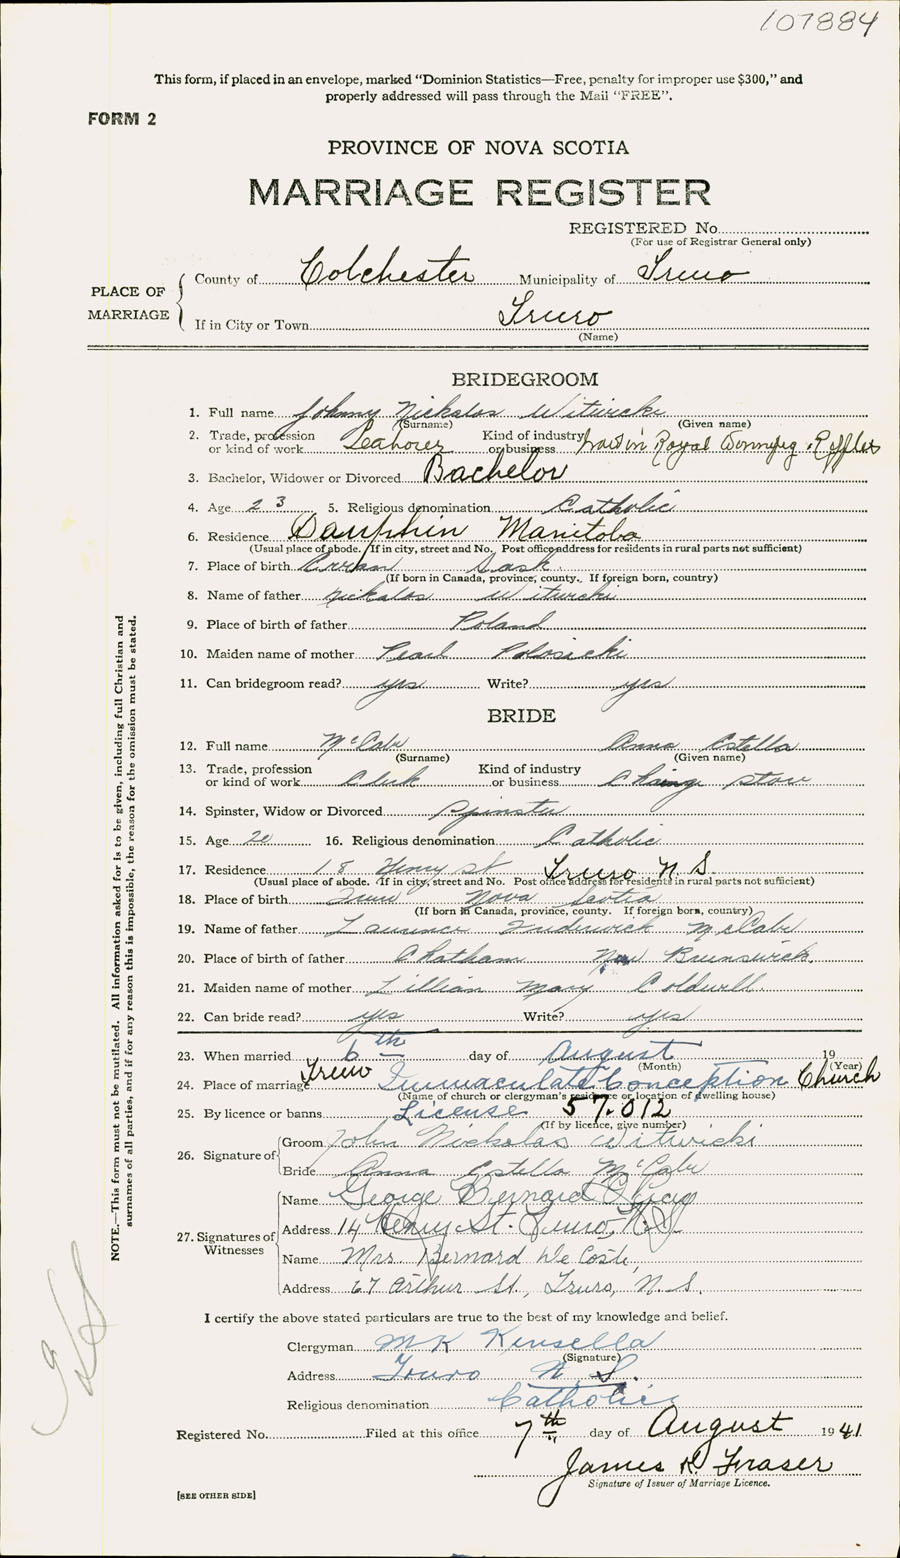 107884
This form, if placed in an envelope, marked "Dominion Statistics—Free, penalty for improper use $300," and
properly addressed will pass through the Mail "FREE".
FORM 2
PROVINCE OF NOVA SCOTIA
MARRIAGE REGISTER
REGISTERED No.
(For use of Registrar General only)
PLACE OF MARRIAGE
County of Colchester Municipality of Truro
If in City or Town Truro
(Name)
BRIDEGROOM
1. Full name Johnny Nickolas Witwicki
(Surname) (Given name)
2. Trade, profession or kind of work Kind of industry or business Royal Winnipeg Riffles
3. Bachelor, Widower or Divorced Bachelor
4. Age 23 5. Religious denomination Catholic
6. Residence Dauphin Manitoba
(Usual place of abode. If in city, street and No. Post office address for residents in rural parts not sufficient)
7. Place of birth Arran Sask.
(If born in Canada, province, county. If foreign born, country)
8. Name of father Nickolas Witwicki
9. Place of birth of father Poland
10. Maiden name of mother Pearl
11. Can bridegroom read? yes Write? yes
BRIDE
12. Full name McCabe Anna Estella
(Surname) (Given name)
13. Trade, profession or kind of work Clerk Kind of industry or business Chaing Store
14. Spinster, Widow or Divorced Spinster
15. Age 20 16. Religious denomination Catholic
17. Residence 18 Henry St Truro N.S.
(Usual place of abode. If in city, street and No. Post office address for residents in rural parts not sufficient)
18. Place of birth Truro Nova Scotia
(If born in Canada, province, county. If foreign born, country)
19. Name of father Laurence Frederick McCabe
20. Place of birth of father Chatham New Brunswick.
21. Maiden name of mother Lillian Mary Coldwell.
22. Can bride read? yes Write? yes
23. When married 6th day of August 19
(Month) (Year)
24. Place of marriage Truro Immaculate Conception Church
(Name of church or clergyman's residence or location of dwelling house)
25. By licence or banns License 57.012
(If by licence, give number)
26. Signature of
Groom John Nickolas Witwicki
Bride Anna Estella McCabe
27. Signatures of Witnesses
Name George Bernard
Address 14 Henry St. Truro, N.S.
Name Mrs. Bernard De Coste
Address 67 Arthur St., Truro, N.S.
I certify the above stated particulars are true to the best of my knowledge and belief.
Clergyman M K Kinsella
(Signature)
Address Truro N.S.
Religious denomination Catholic
Registered No. Filed at this office 7th day of August 1941
James K. Fraser
Signature of Issuer of Marriage Licence.
[SEE OTHER SIDE]
NOTE.—This form must not be mutilated. All information asked for is to be given, including full Christian and
surnames of all parties, and if for any reason this is impossible, the reason for the omission must be stated.